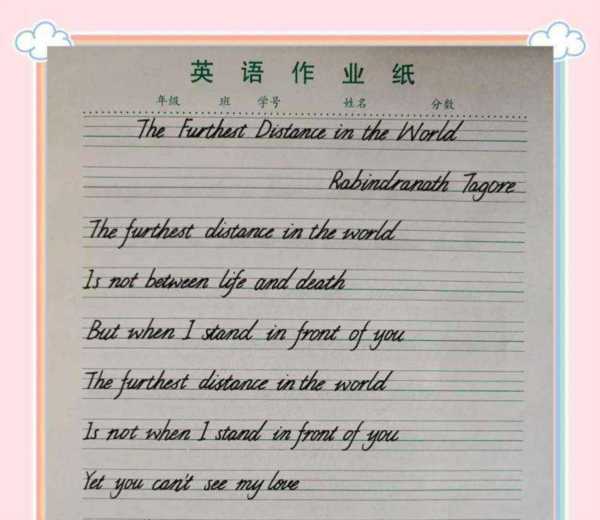 英语作业纸
年级 班 学号 姓名 分数
The Furthest Distance in the World
Rabindranath Tagore
The furthest distance in the world
Is not between life and death
But when I stand in front of you
The furthest distance in the world
Is not when I stand in front of you
Yet you can't see my love